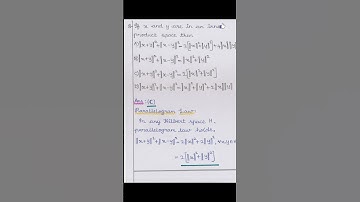 If x and y are in an inner
product space then
A) ||x+y||²+||x-y||²=2[||x||²+||y||²]+4||x|| ||y||
B) ||x+y||²+||x-y||²=||x||²+||y||²
C) ||x+y||²+||x-y||²=2[||x||²+||y||²]
D) ||x+y||²+||x-y||²=||x||²+||y||²+2||x|| ||y||
Ans: (C)
Parallelogram Law:-
In any Hilbert space H,
parallelogram law holds,
||x+y||²+||x-y||²=2||x||²+2||y||², ∀x,y∈H
=2[||x||²+||y||²]